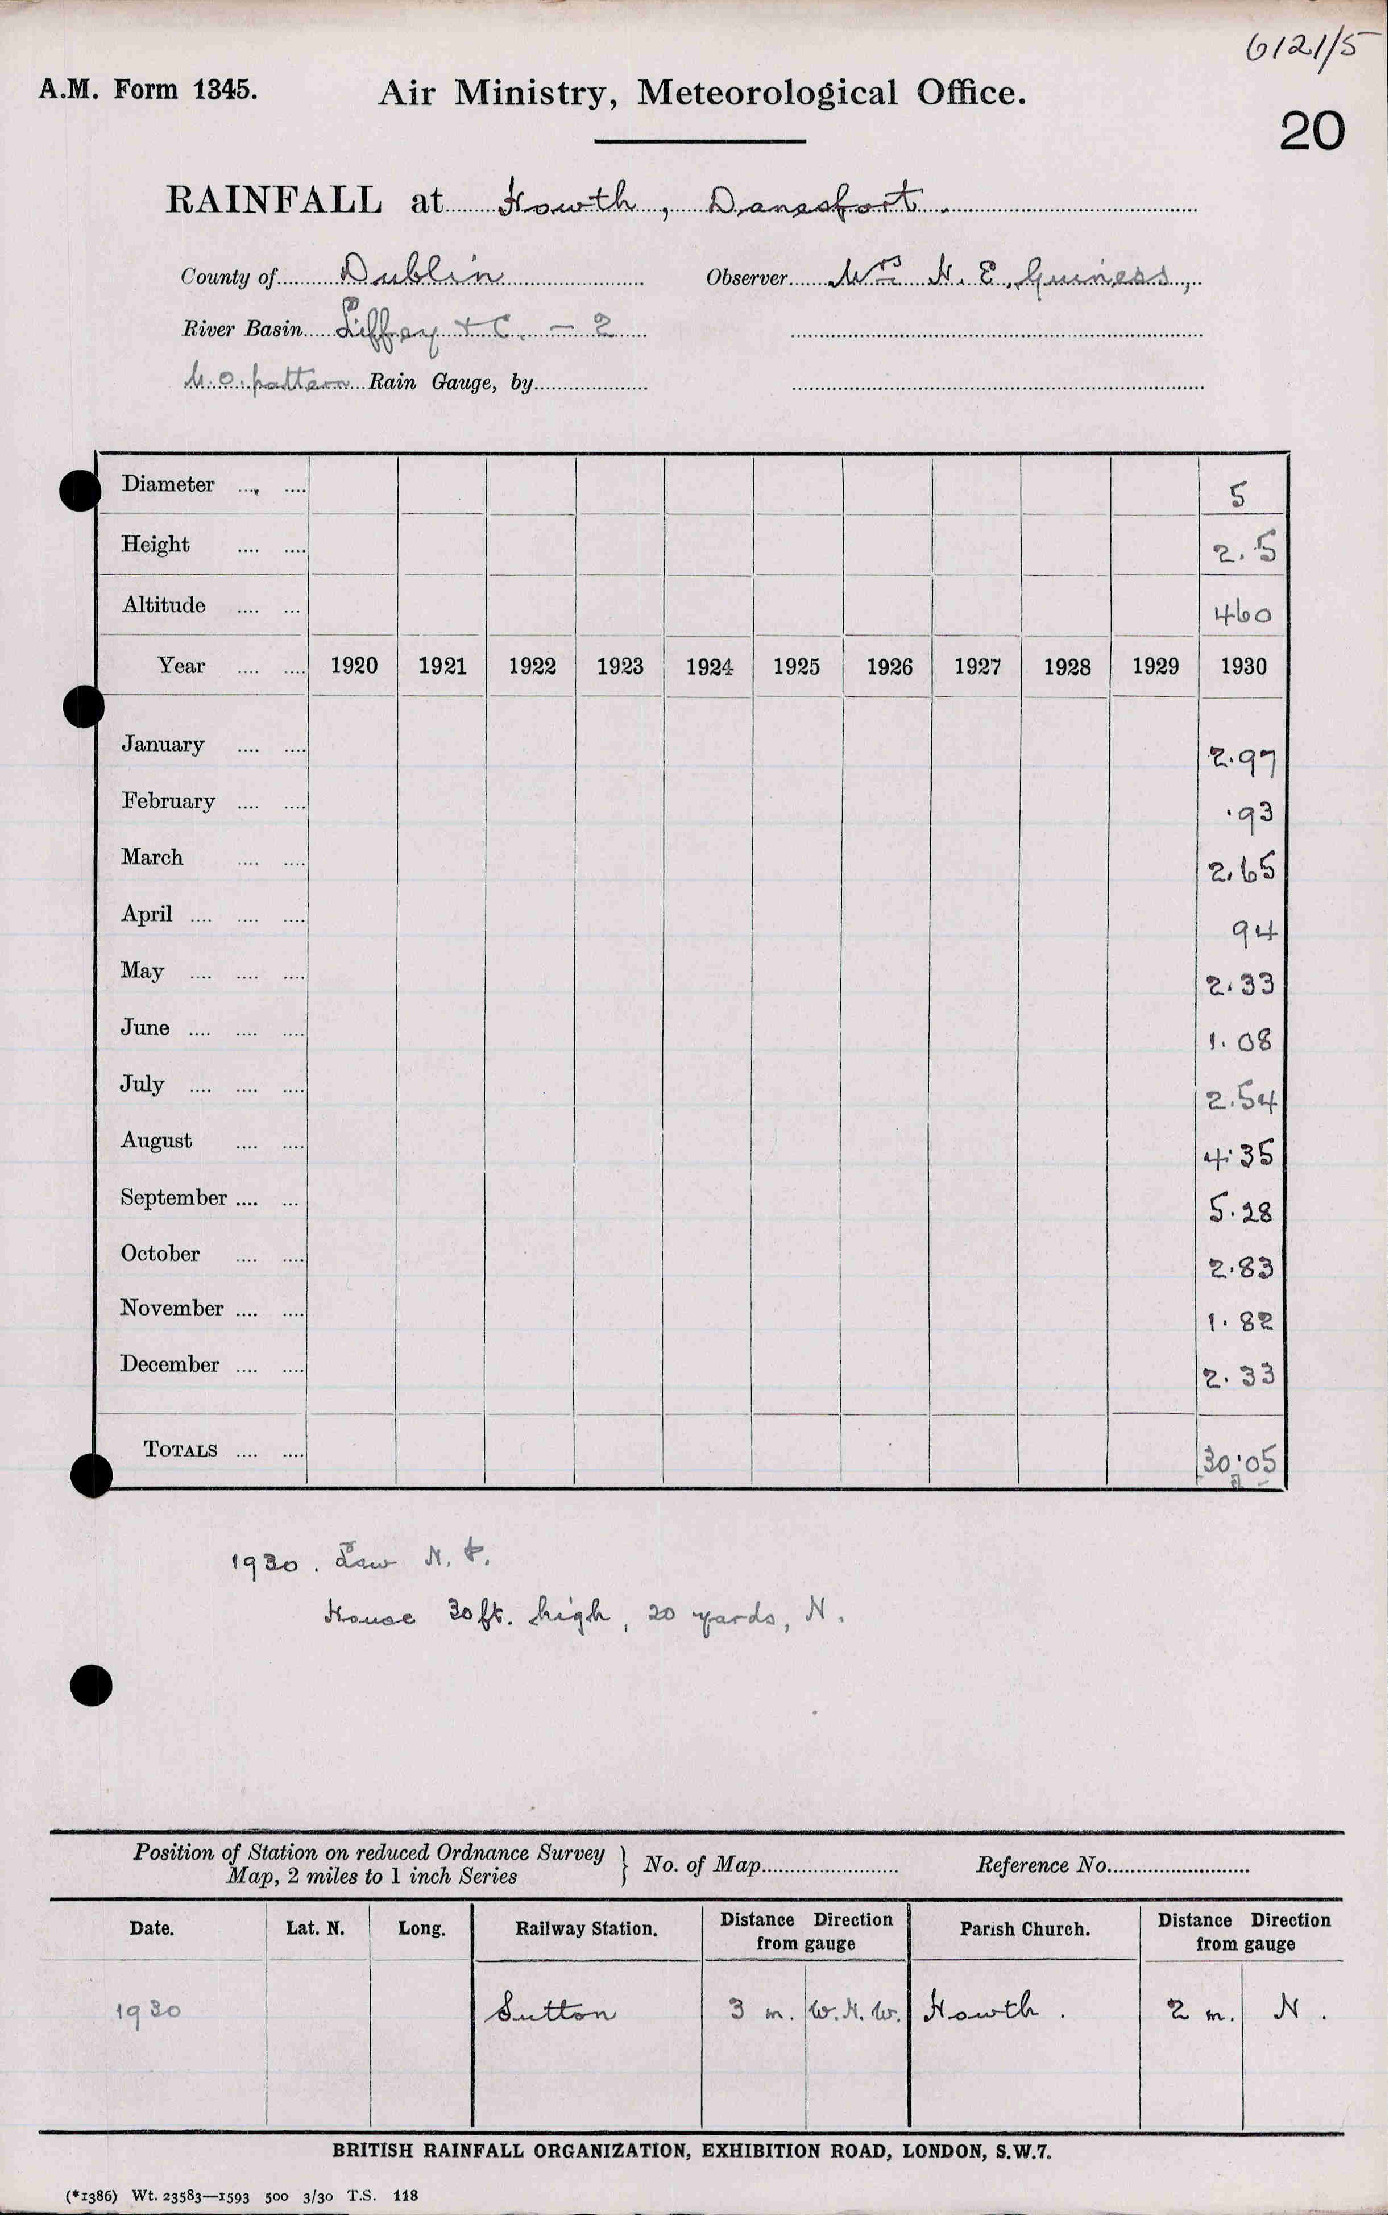 6121/5
A.M. Form 1345. Air Ministry, Meteorological Office.
20
RAINFALL at Howth, Danesfort.
County of Dublin Observer Mrs H. E. Guiness,
River Basin Liffey + C. – 2
M.O. pattern Rain Gauge, by
Diameter .... .... 5
Height .... .... 2.5
Altitude .... ... 460
Year .... .... 1920 1921 1922 1923 1924 1925 1926 1927 1928 1929 1930
January .... .... 2.97
February .... .... .93
March .... .... 2.65
April .... .... .... 94
May .... .... .... 2.33
June .... .... .... 1.08
July .... .... .... 2.54
August .... .... 4.35
September .... ... 5.28
October .... .... 2.83
November .... .... 1.82
December .... .... 2.33
TOTALS .... .... 30.05
1930. Law N.
House 30ft. high, 20 yards, N.
Position of Station on reduced Ordnance Survey
Map, 2 miles to 1 inch Series } No. of Map Reference No.
Date. Lat. N. Long. Railway Station. Distance Direction from gauge Parish Church. Distance Direction from gauge
1930 Sutton 3 m. W.N.W. Howth. 2 m. N.
BRITISH RAINFALL ORGANIZATION, EXHIBITION ROAD, LONDON, S.W.7.
(*1386) Wt. 23583—1593 500 3/30 T.S. 118